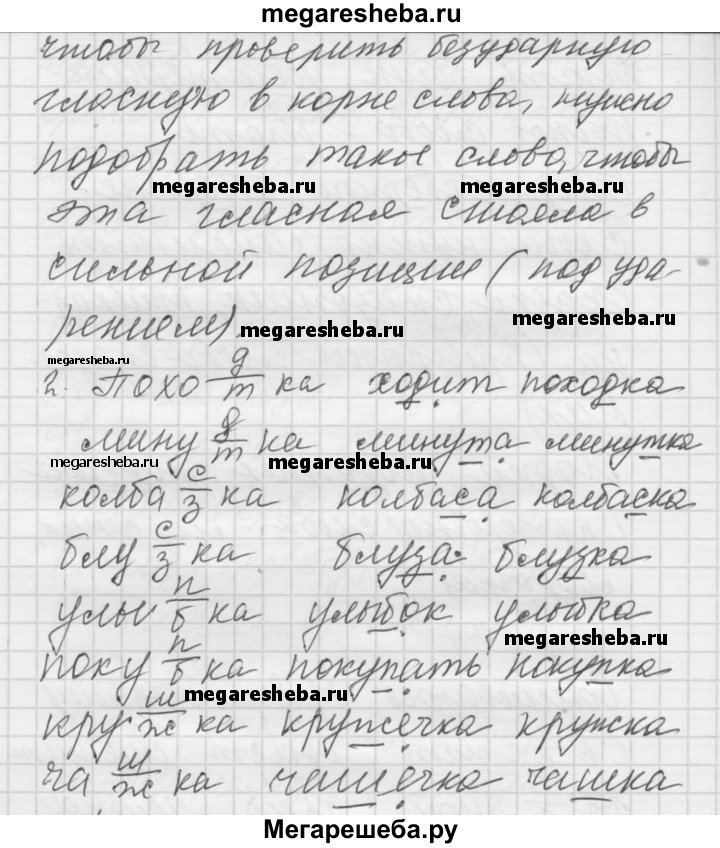 megaresheba.ru
чтобы проверить безударную
гласную в корне слова, нужно
подобрать такое слово, чтобы
megaresheba.ru megaresheba.ru
эта гласная стояла в
сильной позиции (под уда-
рением)
megaresheba.ru megaresheba.ru
megaresheba.ru
2. похо д/т ка ходит походка
мину д/т ка минута минутка
megaresheba.ru megaresheba.ru
колба с/з ка колбаса колбаска
блу с/з ка блуза блузка
улы п/б ка улыбок улыбка
megaresheba.ru
поку п/б ка покупать покупка
megaresheba.ru
кру ш/ж ка кружечка кружка
ча ш/ж ка чашечка чашка
Мегарешеба.ру